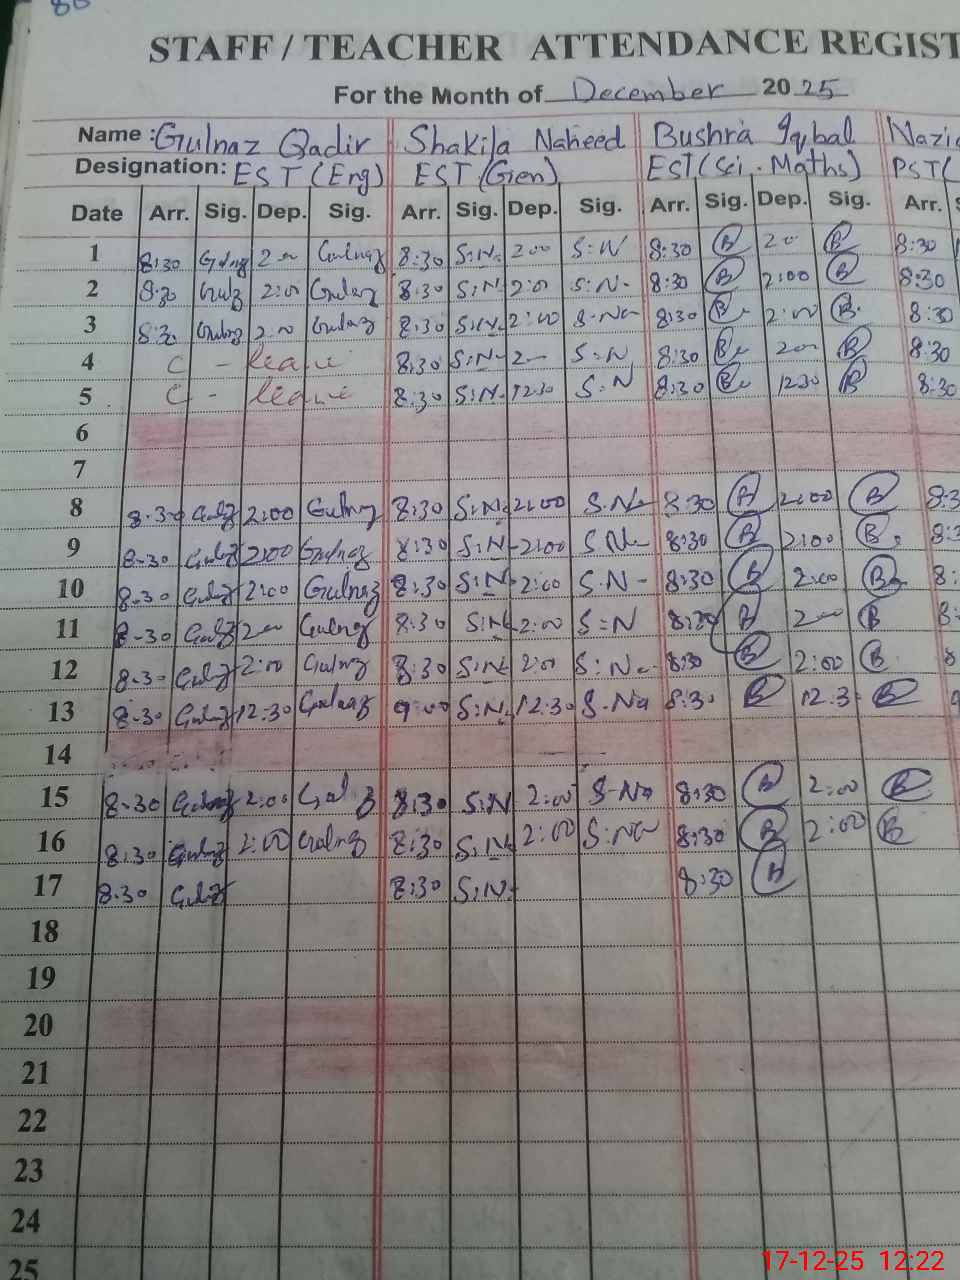 80
STAFF / TEACHER ATTENDANCE REGIST
For the Month of December 2025
Name : Gulnaz Qadir Shakila Naheed Bushra Iqbal Nazi
Designation: EST (Eng) EST (Gen) EST (Sci. Maths) PST(
Date Arr. Sig. Dep. Sig. Arr. Sig. Dep. Sig. Arr. Sig. Dep. Sig. Arr. S
1 8:30 Gulnaz 2:00 Gulnaz 8:30 S:N. 2:00 S:N 8:30 B 2:00 B 8:30
2 8:30 Gulz 2:00 Gulnaz 8:30 S:N 2:00 S:N. 8:30 B 2:00 B 8:30
3 8:30 Gulnaz 2:00 Gulnaz 8:30 S:N. 2:00 S-Na 8:30 B. 2:00 B. 8:30
4 C - leave 8:30 S:N- 2:00 S:N 8:30 B 2:00 B 8:30
5 C - leave 8:30 S:N. 12:30 S:N 8:30 B 12:30 B 8:30
6
7
8 8-30 Gulz 2:00 Gulnaz 8:30 S:N. 2:00 S.Na 8:30 B 2:00 B 8:3
9 8-30 Gulz 2:00 Gulnaz 8:30 S:N- 2:00 S N 8:30 B 2:00 B. 8:3
10 8-30 Gulz 2:00 Gulnaz 8:30 S:N 2:00 S.N- 8:30 B 2:00 B 8:
11 8-30 Gulz 2:00 Gulnaz 8:30 S:N 2:00 S=N 8:30 B 2:00 B 8
12 8-30 Gulz 2:00 Gulnaz 8:30 S:N 2:00 S:Na 8:30 B 2:00 B 8
13 8-30 Gulz 12:30 Gulnaz 9:00 S:N. 12:30 S-Na 8:30 B 12.3 B 9
14
15 8-30 Gulnaz 2:00 Gulz 8:30 S:N 2:00 S-Na 8:30 B 2:00 B
16 8:30 Gulnaz 2:00 Gulnaz 8:30 S:N. 2:00 S:Na 8:30 B 2:00 B
17 8.30 Gulz 8:30 S:N. 8:30 B
18
19
20
21
22
23
24
25
17-12-25 12:22